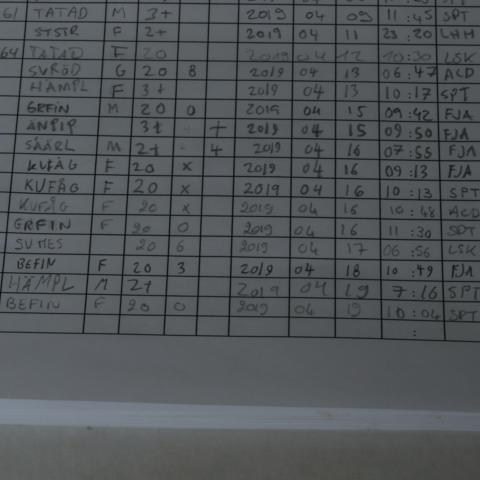 61 TATAD M 3+ 2019 04 09 11:45 SPT
STSTR F 2+ 2019 04 11 23:20 LHH
64 TATAD F 20 2019 04 12 10:30 LSK
SVRÖD G 20 8 2019 04 13 06:47 ALD
HÄMPL F 3+ 2019 04 13 10:17 SPT
GRFIN M 20 0 2019 04 15 09:42 FJA
ÄNPIP 3+ - + 2019 04 15 09:50 FJA
SÄÄRL M 2+ - 4 2019 04 16 07:55 FJA
KUFÅG F 20 x 2019 04 16 09:13 FJA
KUFÅG F 20 x 2019 04 16 10:13 SPT
KUFÅG F 20 x 2019 04 16 10:48 ACD
GRFIN F 20 0 2019 04 16 11:30 SPT
SUMES 20 6 2019 04 17 06:56 LSK
BEFIN F 20 3 2019 04 18 10:49 FJA
HÄMPL M 2+ 2019 04 19 7:16 SPT
BEFIN F 20 0 2019 04 19 10:04 SPT
: